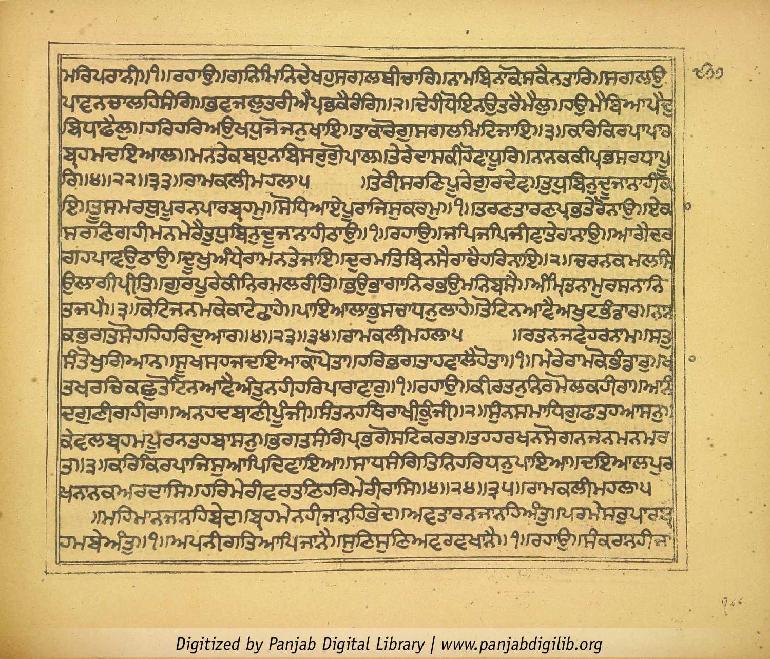 ਮਰਿਪਰਾਨੀ॥੧॥ਰਹਾਉ॥ਗਨਿਮਿਨਿਦੇਖਹੁਸਗਲਬੀਚਾਰਿ॥ਨਾਮਬਿਨਾਕੋਸਕੈਨਤਾਰਿ॥ਸਗਲਉ
ਪਾਵਨਚਾਲਹਿਸੰਗਿ॥ਭਵਜਲੁਤਰੀਐਪ੍ਰਭਕੈਰੰਗਿ॥੨॥ਦੇਹੀਧੋਇਨਉਤਰੈਮੈਲੁ॥ਹਉਮੈਬਿਆਪੈਦੁ
ਬਿਧਾਫੈਲੁ॥ਹਰਿਹਰਿਅਉਖਧੁਜੋਜਨੁਖਾਇ॥ਤਾਕਾਰੋਗੁਸਗਲਮਿਟਿਜਾਇ॥੩॥ਕਰਿਕਿਰਪਾਪਾਰ
ਬ੍ਰਹਮਦਇਆਲ॥ਮਨਤੇਕਬਹੁਨਬਿਸਰੁਗੋੁਪਾਲ॥ਤੇਰੇਦਾਸਕੀਹੋਵਾਧੂਰਿ॥ਨਾਨਕਕੀਪ੍ਰਭਸਰਧਾਪੂ
ਰਿ॥੪॥੨੨॥੩੩॥ਰਾਮਕਲੀਮਹਲਾ੫ ॥ਤੇਰੀਸਰਣਿਪੂਰੇਗੁਰਦੇਵ॥ਤੁਧੁਬਿਨੁਦੂਜਾਨਾਹੀਕੋ
ਇ॥ਤੂਸਮਰਥੁਪੂਰਨਪਾਰਬ੍ਰਹਮੁ॥ਸੋਧਿਆਏਪੂਰਾਜਿਸੁਕਰਮੁ॥੧॥ਤਰਣਤਾਰਣਪ੍ਰਭਤੇਰੋਨਾਉ॥ਏਕ
ਸਰਣਿਗਹੀਮਨਮੇਰੈਤੁਧੁਬਿਨੁਦੂਜਾਨਾਹੀਠਾਉ॥੧॥ਰਹਾਉ॥ਜਪਿਜਪਿਜੀਵਾਤੇਰਾਨਾਉ॥ਆਗੈਦਰ
ਗਹਪਾਵਉਠਾਉ॥ਦੂਖੁਅੰਧੇਰਾਮਨਤੇਜਾਇ॥ਦੁਰਮਤਿਬਿਨਸੈਰਾਚੈਹਰਿਨਾਇ॥੨॥ਚਰਨਕਮਲਸਿ
ਉਲਾਗੀਪ੍ਰੀਤਿ॥ਗੁਰਪੂਰੇਕੀਨਿਰਮਲਰੀਤਿ॥ਭਉਭਾਗਾਨਿਰਭਉਮਨਿਬਸੈ॥ਅੰਮ੍ਰਿਤਨਾਮੁਰਸਨਾਨਿ
ਤਜਪੈ॥੩॥ਕੋਟਿਜਨਮਕੇਕਾਟੇਫਾਹੇ॥ਪਾਇਆਲਾਭੁਸਚਾਧਨੁਲਾਹੇ॥ਤੋਟਿਨਆਵੈਅਖੁਟਭੰਡਾਰ॥ਨਾਨ
ਕਭਗਤਸੋਹਹਿਹਰਿਦੁਆਰ॥੪॥੨੩॥੩੪॥ਰਾਮਕਲੀਮਹਲਾ੫ ॥ਰਤਨਜਵੇਹਰਨਾਮ॥ਸਤੁ
ਸੰਤੋਖੁਗਿਆਨ॥ਸੂਖਸਹਜਦਇਆਕਾਪੋਤਾ॥ਹਰਿਭਗਤਾਹਵਾਲੈਹੋਤਾ॥੧॥ਮੇਰੇਰਾਮਕੋਭੰਡਾਰੁ॥ਖਾ
ਤਖਰਚਿਕਛੁਤੋਟਿਨਆਵੈਅੰਤੁਨਹੀਹਰਿਪਾਰਾਵਾਰੁ॥੧॥ਰਹਾਉ॥ਕੀਰਤਨੁਨਿਰਮੋਲਕਹੀਰਾ॥ਆਨੰ
ਦਗੁਣੀਗਹੀਰਾ॥ਅਨਹਦਬਾਣੀਪੂੰਜੀ॥ਸੰਤਨਹਥਿਰਾਖੀਕੂੰਜੀ॥੨॥ਸੁੰਨਸਮਾਧਿਗੁਫਾਤਹਆਸਨੁ॥
ਕੇਵਲਬ੍ਰਹਮਪੂਰਨਤਹਬਾਸਨੁ॥ਭਗਤਸੰਗਿਪ੍ਰਭੁਗੋਸਟਿਕਰਤ॥ਤਹਹਰਖਨਸੋਗਨਜਨਮਨਮਰ
ਤ॥੩॥ਕਰਿਕਿਰਪਾਜਿਸੁਆਪਿਦਿਵਾਇਆ॥ਸਾਧਸੰਗਿਤਿਨਿਹਰਿਧਨੁਪਾਇਆ॥ਦਇਆਲਪੁਰ
ਖਨਾਨਕਅਰਦਾਸਿ॥ਹਰਿਮੇਰੀਵਰਤਣਿਹਰਿਮੇਰੀਰਾਸਿ॥੪॥੨੪॥੩੫॥ਰਾਮਕਲੀਮਹਲਾ੫
॥ਮਹਿਮਾਨਜਾਨਹਿਬੇਦ॥ਬ੍ਰਹਮੇਨਹੀਜਾਨਹਿਭੇਦ॥ਅਵਤਾਰਨਜਾਨਹਿਅੰਤੁ॥ਪਰਮੇਸਰੁਪਾਰਬ੍ਰ
ਹਮਬੇਅੰਤੁ॥੧॥ਅਪਨੀਗਤਿਆਪਿਜਾਨੈ॥ਸੁਣਿਸੁਣਿਅਵਰਵਖਾਨੈ॥੧॥ਰਹਾਉ॥ਸੰਕਰਾਨਹੀਜਾ
Digitized by Panjab Digital Library | www.panjabdigilib.org